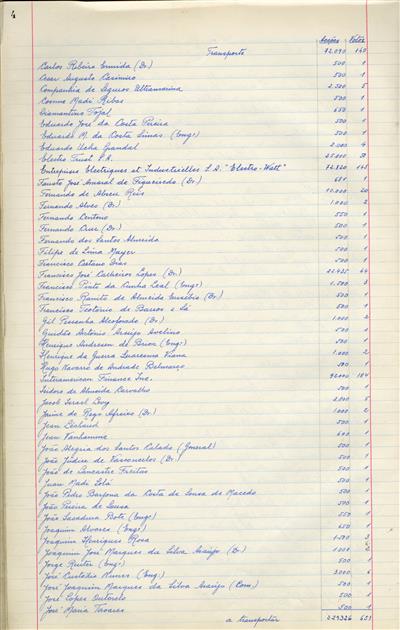 4
Acções Votos
Transporte 72.090 140
Carlos Ribeiro Ermida (Dr.) 500 1
Cesar Augusto Casimiro 500 1
Companhia de Seguros Ultramarina 2.500 5
Cosme Madi Ribas 500 1
Diamantino Tojal 650 1
Eduardo José da Costa Pereira 500 1
Eduardo M. da Costa Simas (Engº) 500 1
Eduardo Ucha Grandal 2.000 4
Electro Trust S.A. 25.000 50
Entreprises Electriques et Industrielles S.A. "Electro-Watt" 1
Fausto José Amaral de Figueiredo (Dr.) 1
Fernando de Abreu Reis 10.000 20
Fernando Alves (Dr.) 1.000 2
Fernando Centeno 550 1
Fernando Cruz (Dr.) 500 1
Fernando dos Santos Almeida 500 1
Filipe de Lima Mayer 500 1
Francisco Caetano Dias 500 1
Francisco José Carneiro Lopes (Dr.) 44
Francisco Pinto da Cunha Leal (Engº) 1.500 3
Francisco Ramito de Almeida Eusébio (Dr.) 500 1
Francisco Teotónio de Barros e Sá 500 1
Gil Pessanha Alcoforado (Dr.) 1.000 2
Guidão António Araújo Avelino 500 1
Henrique Andresen de Brion (Engº) 500 1
Henrique da Guerra Lourenço Viana 1.000 2
Hugo Navarro de Andrade Belmarço 500 1
Interamerican Finance Inc. 92000 184
Isidoro de Almeida Carvalho 500 1
Jacob Israel Levy 2.000 5
Jaime do Rego Afreixo (Dr.) 1000 2
Jean 500 1
Jean Vanhamme 600 1
João Alegria dos Santos Calado (General) 500 1
João Júdice de Vasconcelos (Dr.) 500 1
João de Lencastre Freitas 500 1
Juan Madi 500 1
João Pedro Barjona da Costa de Sousa de Macedo 500 1
João Pereira de Sousa 500 1
João Sassadura Bote (Engº) 550 1
Joaquim Alvares (Engº) 650 1
Joaquim Henriques Rosa 1.500 3
Joaquim José Marques da Silva Araújo (Dr.) 1000 2
Jorge Reuter (Engº) 500 1
José Custódio Nunes (Engº) 3.000 6
José Joaquim Marques da Silva Araújo (Com.) 500 1
José Lopes 500 1
José Maria Tavares 500 1
a transportar 651